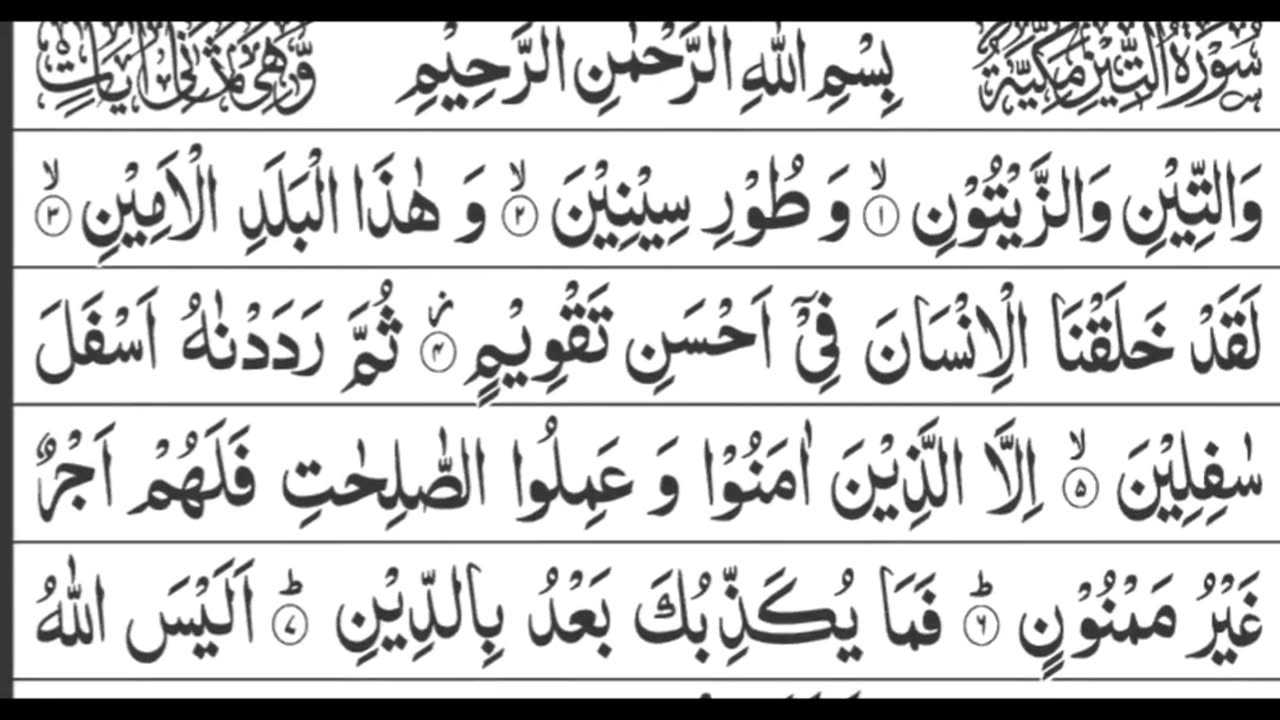 سُوْرَةُ التِّيْنِ مَكِّيَّةٌ بِسْمِ اللّٰهِ الرَّحْمٰنِ الرَّحِيْمِ وَّهِيَ ثَمَانِيْ اٰيَاتٍ
وَالتِّيْنِ وَالزَّيْتُوْنِ ۙ﴿۱﴾ وَ طُوْرِ سِيْنِيْنَ ۙ﴿۲﴾ وَ هٰذَا الْبَلَدِ الْاَمِيْنِ ۙ﴿۳﴾
لَقَدْ خَلَقْنَا الْاِنْسَانَ فِيْۤ اَحْسَنِ تَقْوِيْمٍ ؗ﴿۴﴾ ثُمَّ رَدَدْنٰهُ اَسْفَلَ
سٰفِلِيْنَ ۙ﴿۵﴾ اِلَّا الَّذِيْنَ اٰمَنُوْا وَ عَمِلُوا الصّٰلِحٰتِ فَلَهُمْ اَجْرٌ
غَيْرُ مَمْنُوْنٍ ؕ﴿۶﴾ فَمَا يُكَذِّبُكَ بَعْدُ بِالدِّيْنِ ؕ﴿۷﴾ اَلَيْسَ اللّٰهُ